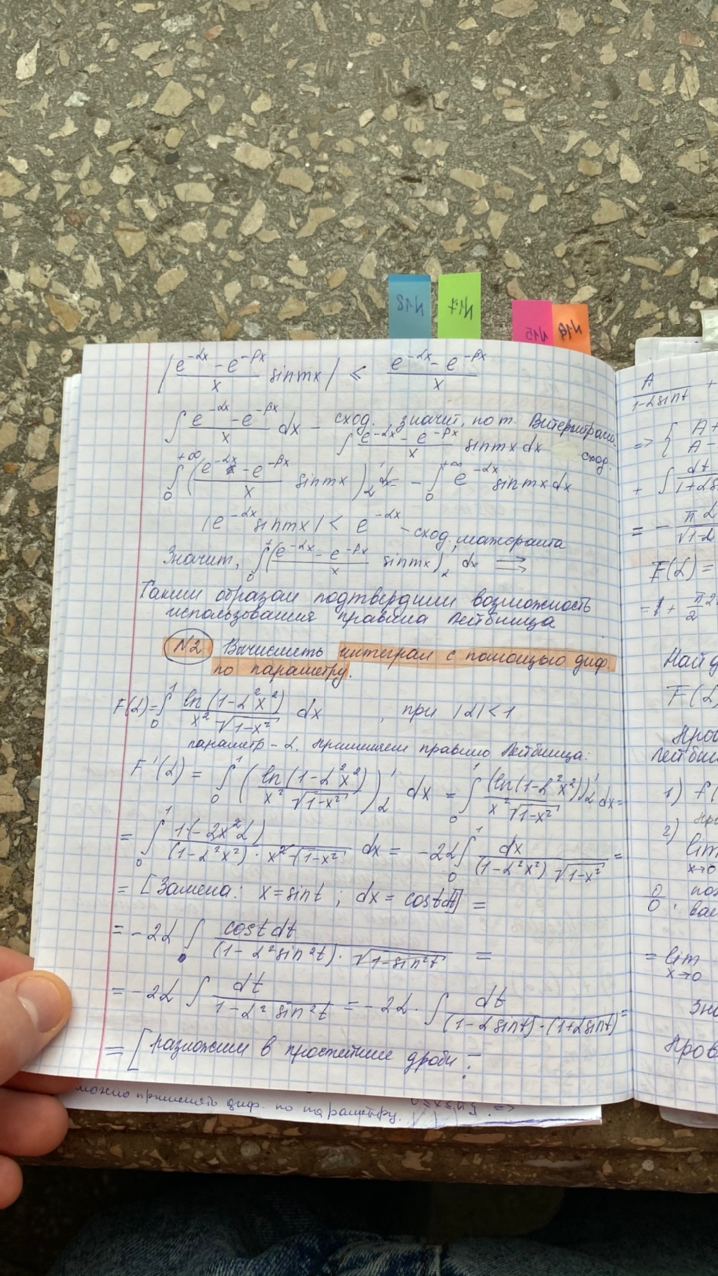 N18
N17
N15
N14
|(e^{-αx} - e^{-βx})/x sin mx| ≤ (e^{-αx} - e^{-βx})/x
∫ (e^{-αx} - e^{-βx})/x dx - сход., значит, по т. Вейерштрасса
∫ (e^{-αx} - e^{-βx})/x sin mx dx сход.
∫_0^{+∞} ((e^{-αx} - e^{-βx})/x sin mx)'_α dx = - ∫_0^{+∞} e^{-αx} sin mx dx
|e^{-αx} sin mx| < e^{-αx} - сход. мажоранта
Значит, ∫_0 ((e^{-αx} - e^{-βx})/x sin mx)'_α dx ⇉
Таким образом подтвердили возможность
использования правила Лейбница
N2 Вычислить интеграл с помощью диф.
по параметру.
F(α) = ∫_0^1 ln(1-α²x²)/(x² √(1-x²)) dx , при |α|<1
параметр - α. Применяем правило Лейбница:
F'(α) = ∫_0^1 (ln(1-α²x²)/(x² √(1-x²)))'_α dx = ∫_0^1 (ln(1-α²x²))'_α/(x² √(1-x²)) dx =
= ∫_0^1 1·(-2x²α)/((1-α²x²)·x² √(1-x²)) dx = -2α ∫_0^1 dx/((1-α²x²) √(1-x²)) =
= [Замена: x = sin t ; dx = cos t dt] =
= -2α ∫_0 cos t dt/((1-α² sin² t)·√(1-sin² t)) =
= -2α ∫ dt/(1-α² sin² t) = -2α · ∫ dt/((1-α sin t)·(1+α sin t)) =
= [разложим в простейшие дроби:
можно применять диф. по параметру.
A/(1-α sin t) +
=> { A+
A-
+ ∫ dt/(1+α s
= - πα/√(1-α
F(α) =
= 1 + π/2
Найд
F(α
Лейбни
1) f(
2)
lim
x→0
0/0 .
= lim
x→0
Зна
Пров